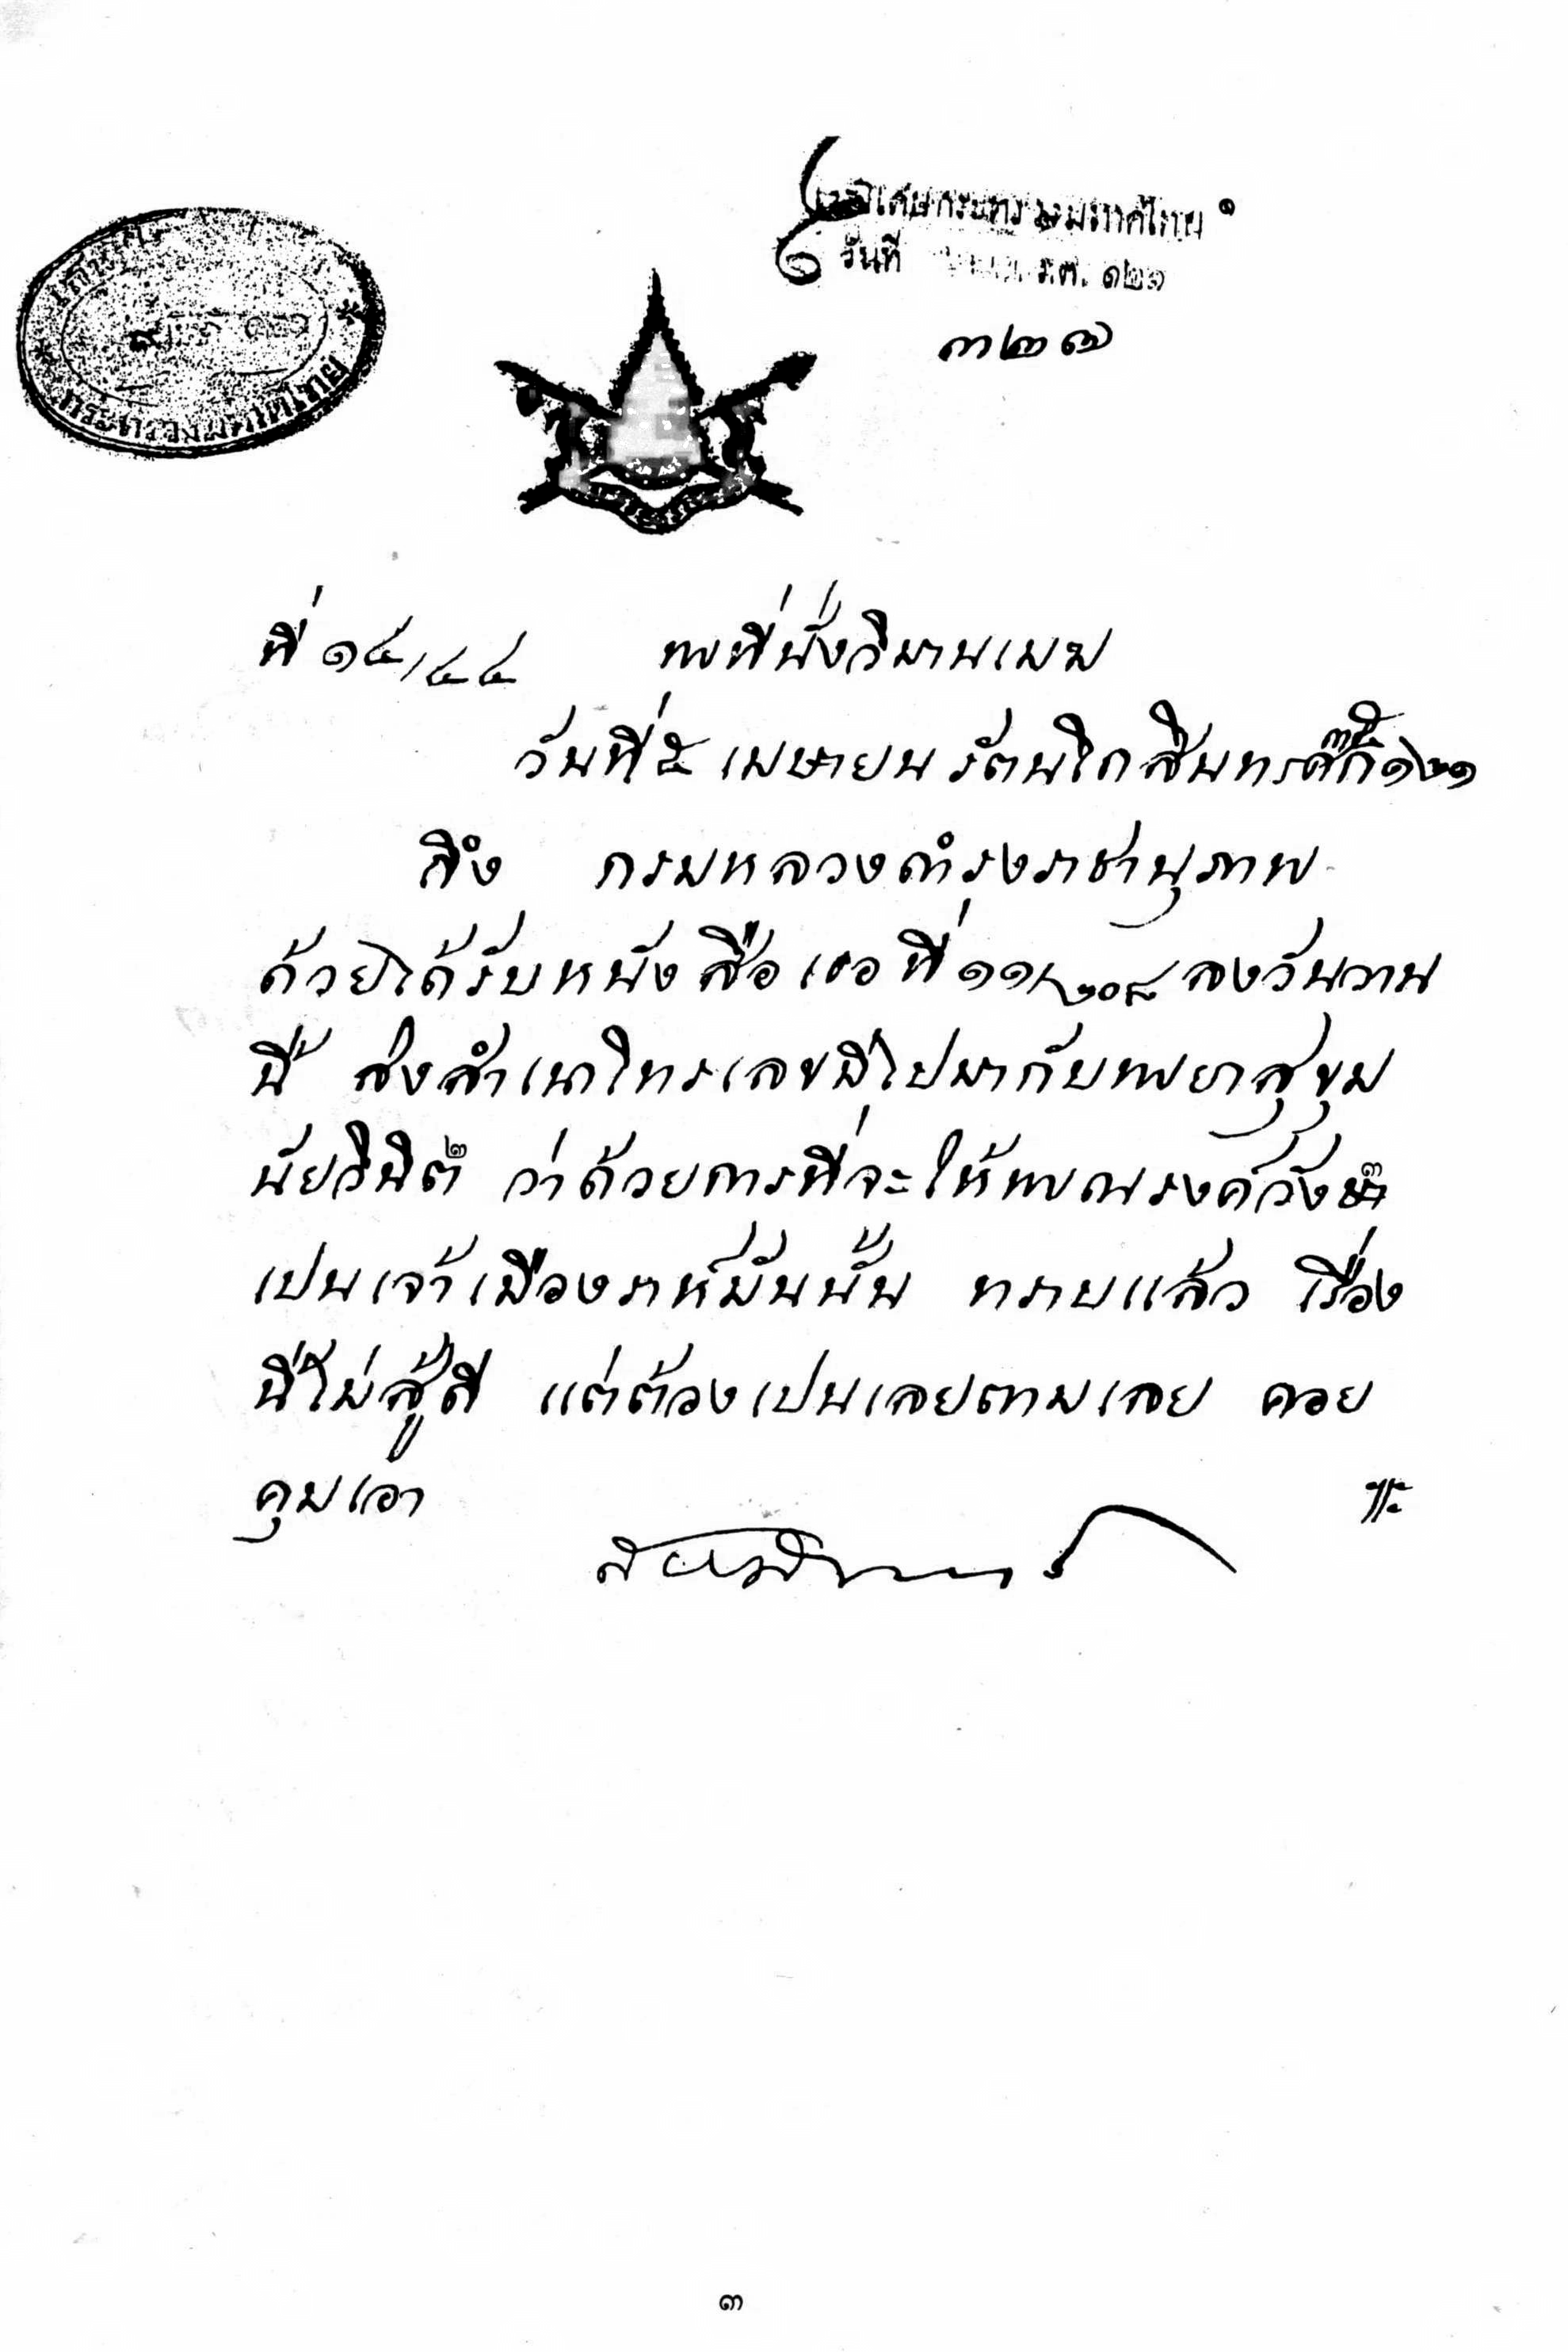 วันที่ ร.ศ. ๑๒๑
๓๒๗
กระทรวงมหาดไทย
ที่ ๑๔/๔๔ พที่นั่งวิมานเมฆ
วันที่ ๕ เมษายน รัตนโกสินทรศก๊ ๑๒๑
ถึง กรมหลวงดำรงราชานุภาพ
ด้วยได้รับหนังสือเธอที่ ๑๑/๒๐๘ ลงวันวาน
นี้ ส่งสำเนาโทรเลขมีไปมากับพยาสุขุม
นัยวินิต๒ ว่าด้วยการที่จะให้พณรงค์วังษา
เปนเจ้าเมืองราห์มันนั้น ทราบแล้ว เรื่อง
นี้ไม่สู้ดี แต่ต้องเปนเลยตามเลย คอย
คุมเอา
สยามินทร์
๓